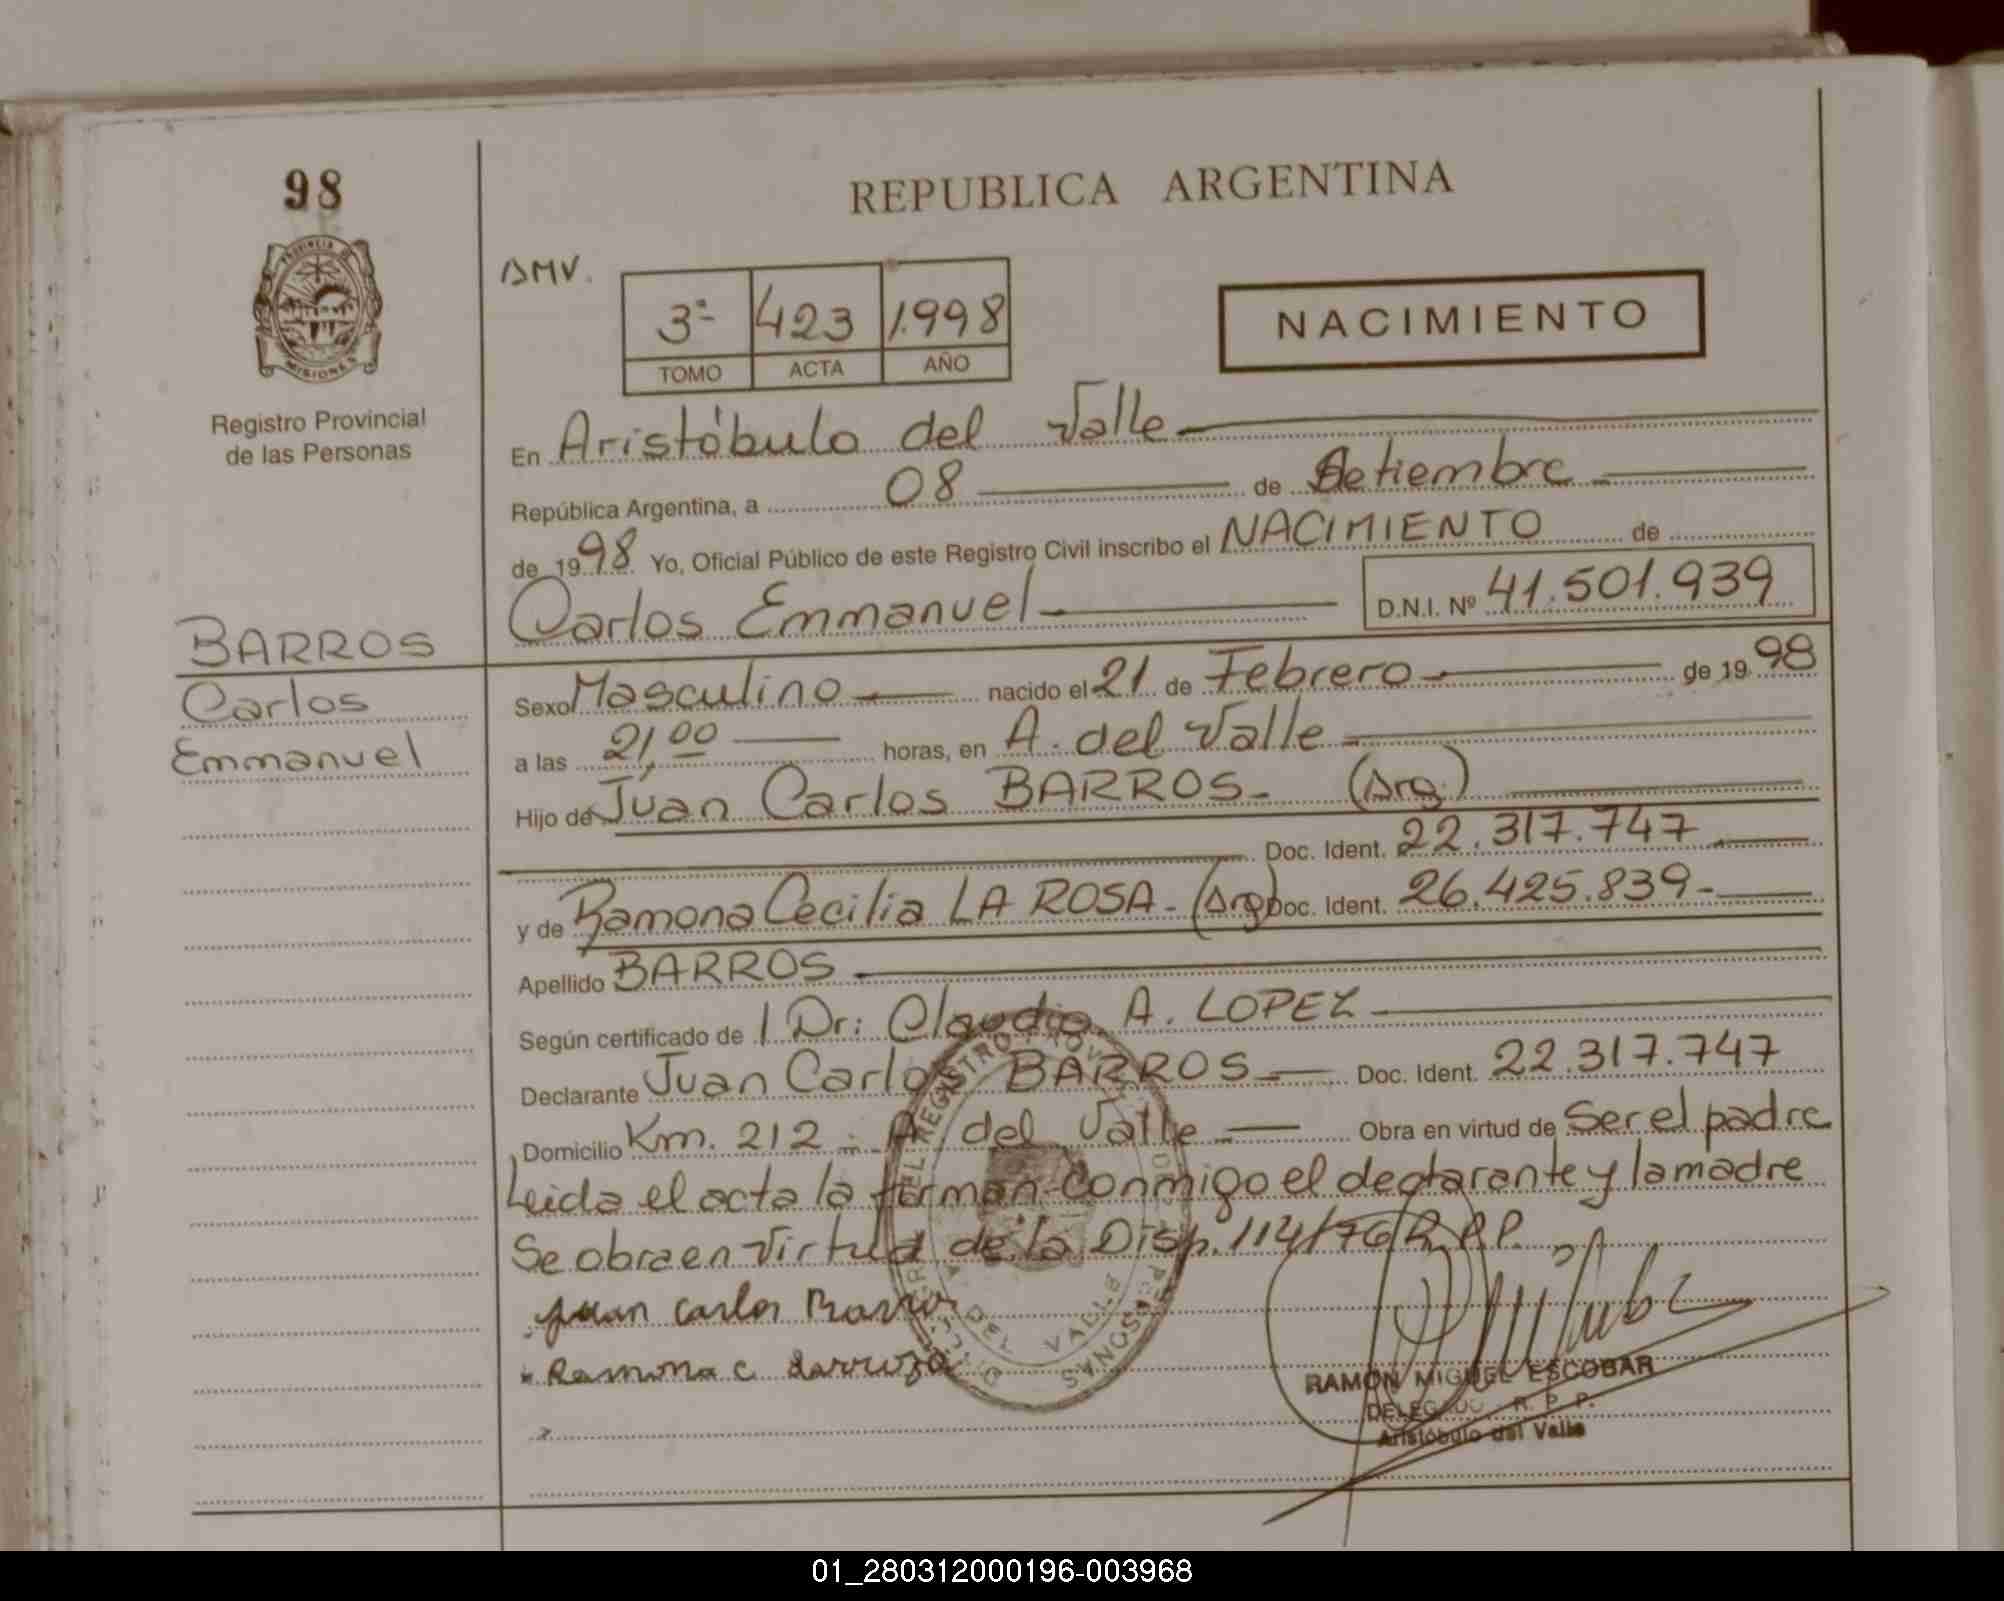 98
REPUBLICA ARGENTINA
PROVINCIA DE
MISIONES
Registro Provincial
de las Personas
AMV.
3ª 423 1.998
TOMO ACTA AÑO
NACIMIENTO
En Aristóbulo del Valle
República Argentina, a 08 de Setiembre
de 1998 Yo, Oficial Público de este Registro Civil inscribo el NACIMIENTO de
Carlos Emmanuel D.N.I. Nº 41.501.939
BARROS
Carlos
Emmanuel
Sexo Masculino nacido el 21 de Febrero de 1998
a las 21,00 horas, en A. del Valle
Hijo de Juan Carlos BARROS- (Arg.)
Doc. Ident. 22.317.747
y de Ramona Cecilia LA ROSA- (Arg) Doc. Ident. 26.425.839-
Apellido BARROS
Según certificado de l Dr: Claudio A. LOPEZ
Declarante Juan Carlos BARROS Doc. Ident. 22.317.747
Domicilio Km. 212 - A. del Valle Obra en virtud de Ser el padre
Leida el acta la firman conmigo el declarante y la madre
Se obra en virtud de la Disp. 114/76 R.P.P.
Juan Carlos Barros
Ramona C
REGISTRO PROVINCIAL DE LAS PERSONAS
DEL VALLE
RAMON MIGUEL ESCOBAR
DELEGADO - R. P. P.
Aristóbulo del Valle
01_280312000196-003968